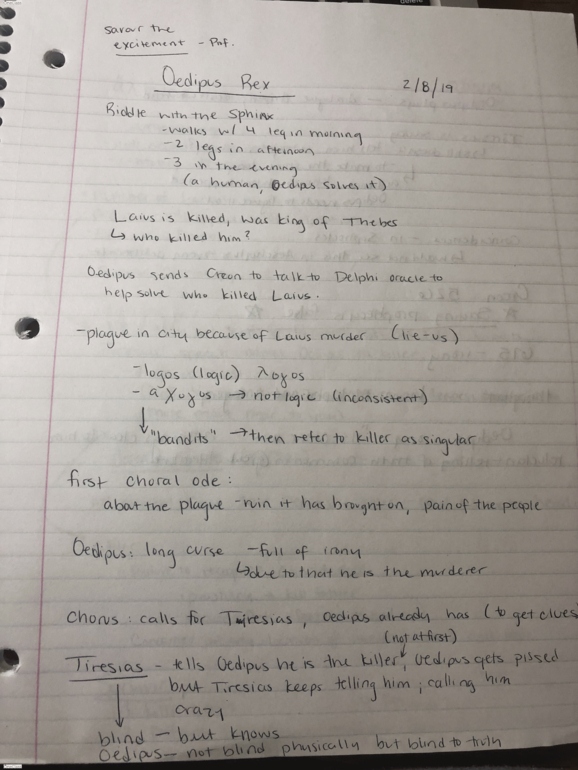 savour the
excitement - Prof.
Oedipus Rex 2/8/19
Riddle with the Sphinx
-walks w/ 4 leg in morning
-2 legs in afternoon
-3 in the evening
(a human, Oedipus solves it)
Laius is killed, was king of Thebes
↳ who killed him?
Oedipus sends Creon to talk to Delphi oracle to
help solve who killed Laius.
-plague in city because of Laius murder (lie-us)
-logos (logic) λογος
- aλογος → not logic (inconsistent)
↓ "bandits" → then refer to killer as singular
first choral ode:
about the plague -ruin it has brought on, pain of the people
Oedipus: long curse -full of irony
↳ due to that he is the murderer
Chorus: calls for Tiresias, oedipus already has (to get clues
(not at first)
Tiresias - tells Oedipus he is the killer, Oedipus gets pissed
but Tiresias keeps telling him; calling him
crazy
↓
blind - but knows
Oedipus- not blind physically but blind to truth